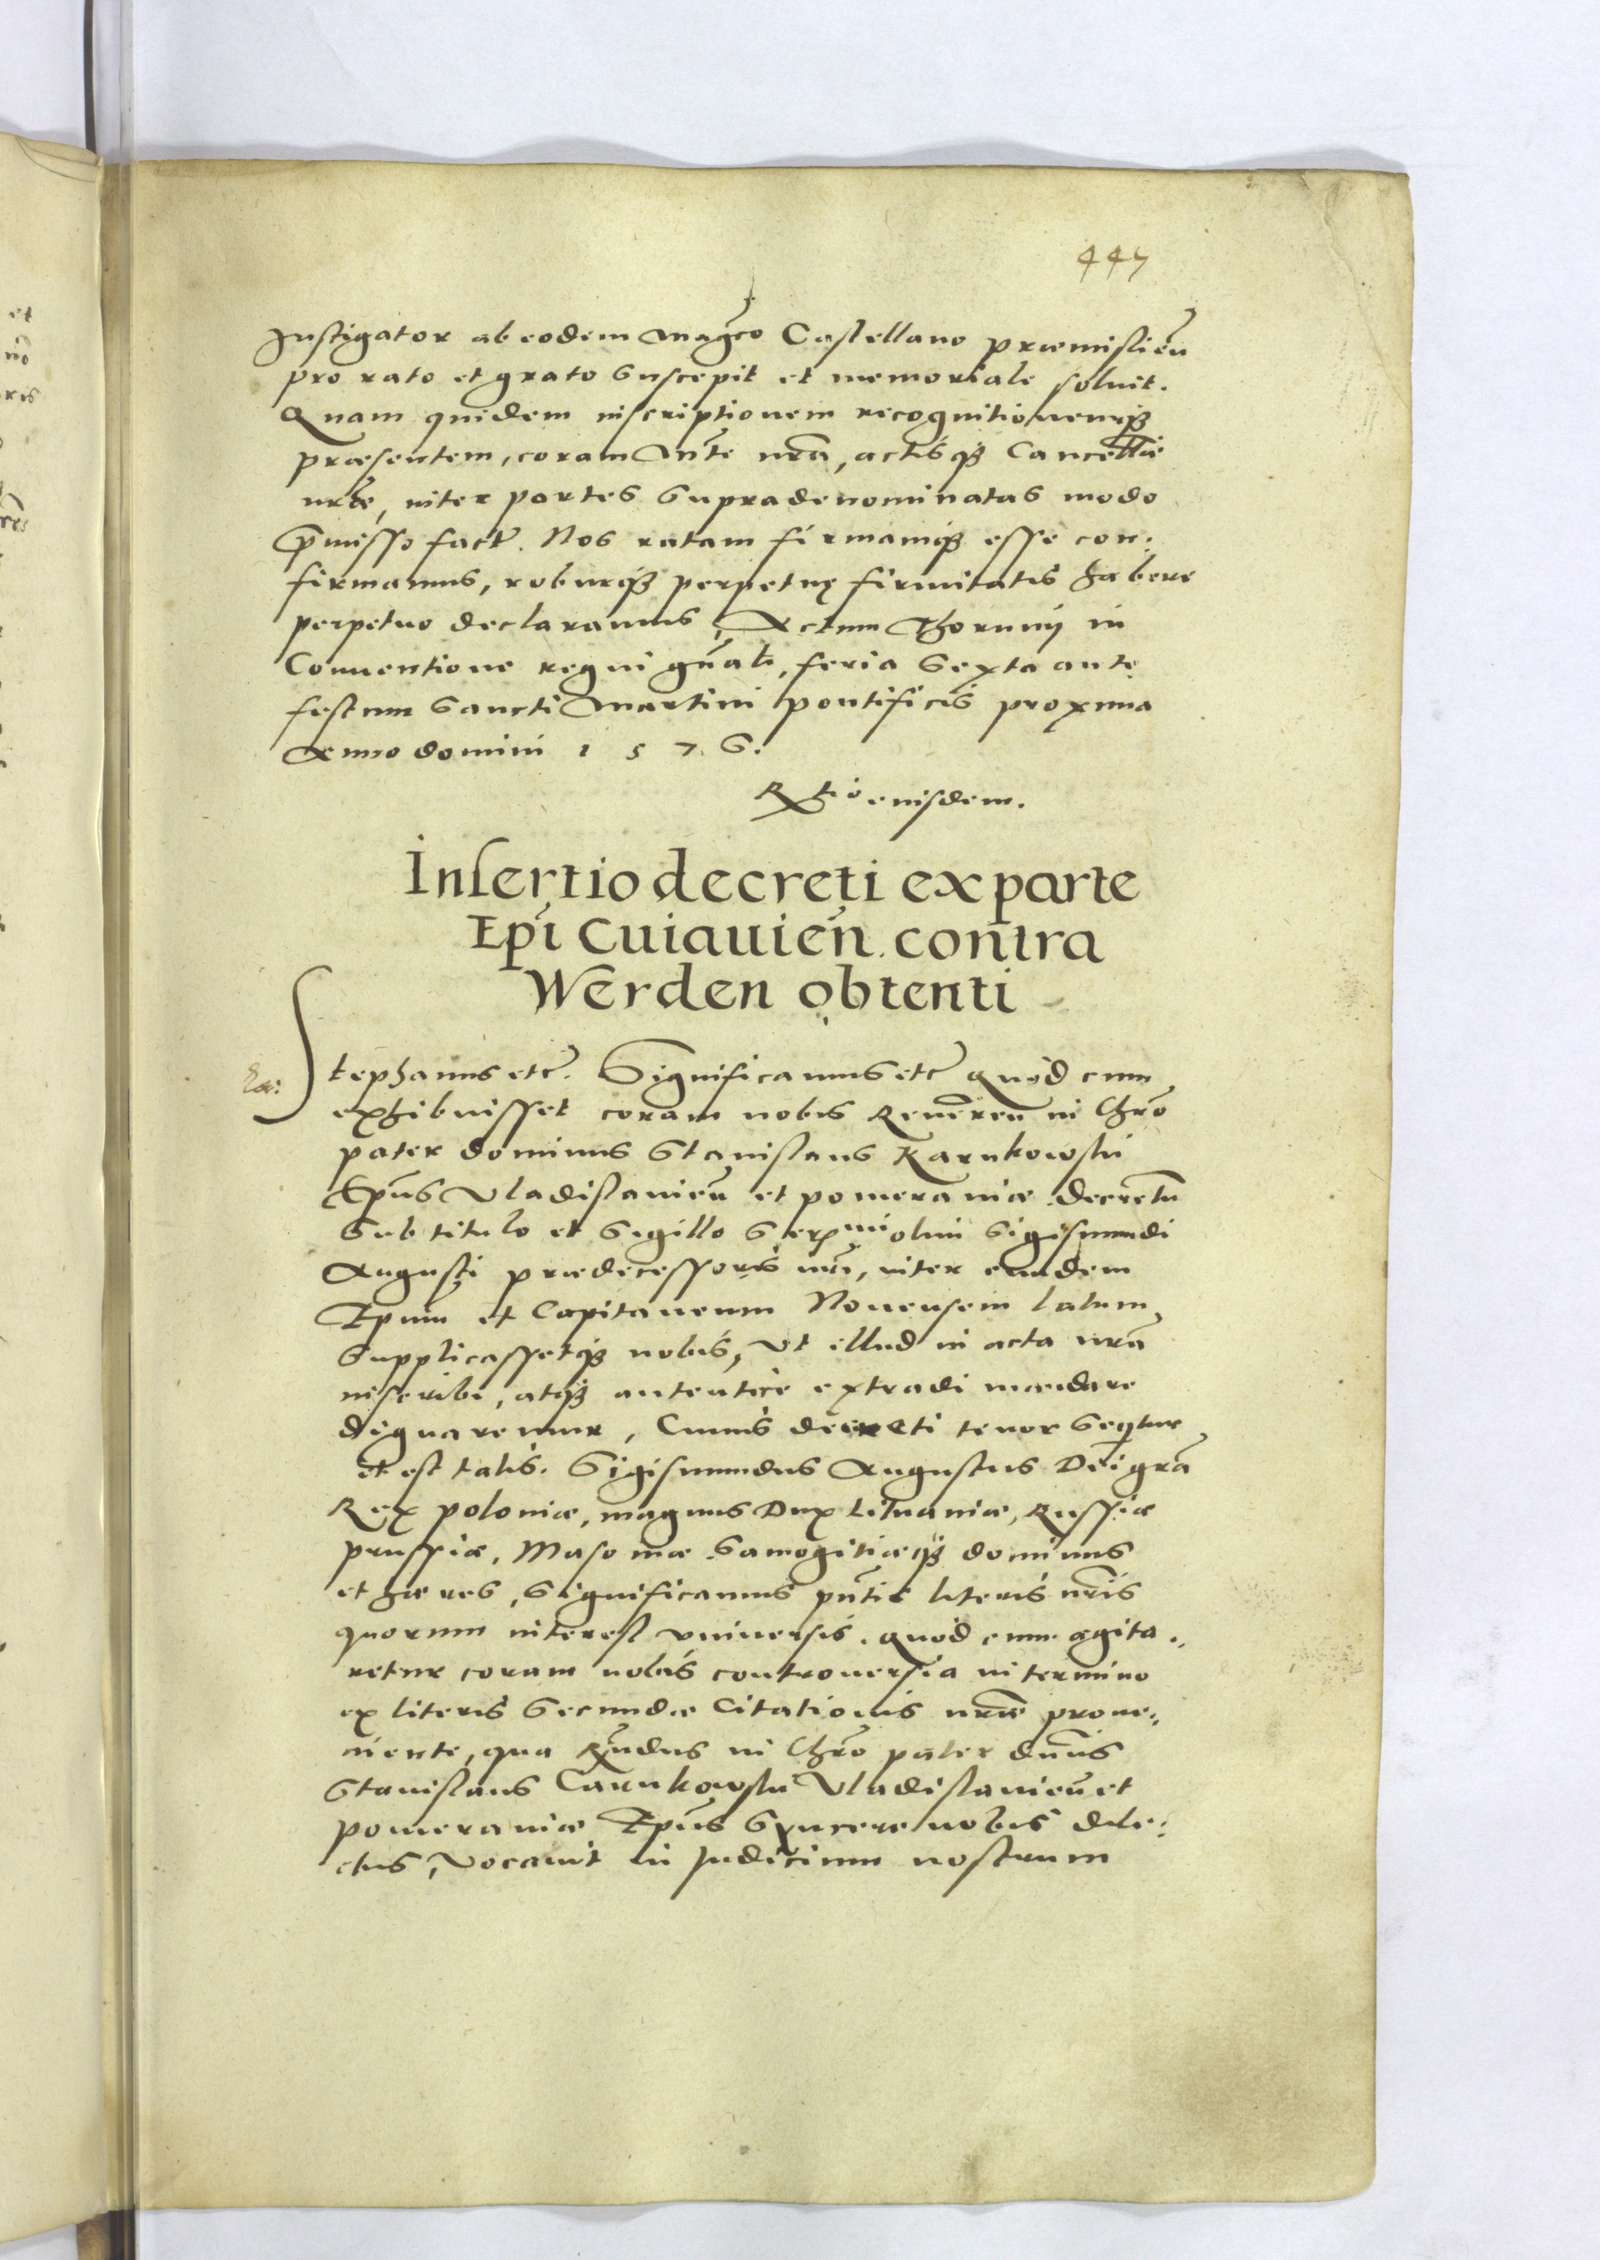 447
Instigator ab eodem Mag͠co Castellano præmislień
pro rato et grato suscepit et memoriale soluit.
Quam quidem inscriptionem recognitionemq̃
præsentem, coram Mte nr̃a, actisq̃ Cancellæ
nr̃æ, inter partes supradenominatas modo
p̃misso fact. Nos ratam firmamq̃ esse con:
firmamus, roburq̃ perpetuę firmitatis habere
perpetuo declaramus, Actum Thorunij in
Conuentione regni gñali, feria sexta ante
festum Sancti Martini pontificis proxima
Anno domini 1576.
Rtio eiusdem.
Insertio decreti ex parte
Ep̃i Cuiauień. contra
Werden obtenti
Stephanus etc̃. Significamus etc̃ quod cum
exhibuisset coram nobis Reuereñ in Chr̃o
pater dominus Stanislaus Karnkowski
Ep̃us Vladislauień et pomeraniæ decretũ
sub titulo et sigillo serᵐⁱ olim Sigismundi
Augusti prædecessoris nr̃i, inter eundem
Ep̃um et Capitaneum Nouensem latum
supplicassetq̃ nobis, Vt illud in acta nr̃a
inscribi, atq̃ autentice extradi mandare
dignaremur, Cuius decreti tenor seqitur
et est talis. Sigismundus Augustus Dei gr̃a
Rex poloniæ, magnus Dux Lituaniæ, Russiæ
prussiæ, Masoniæ Samogitiæq̃ dominus
et hæres, Significamus pñtis literis nr̃is
quorum interest vniuersis. quod cum agita:
retur coram nobis controuersia in termino
ex literis secundæ Citationis nr̃æ proue:
niente, qua Rñdus in Chr̃o pater dñus
Stanislaus Carnkowski Vladislauień et
pomeraniæ Ep̃us syncere nobis dile:
ctus, Vocauit in Judicium nostrum